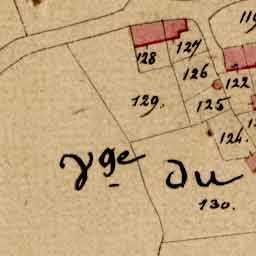 119
127
128
126
122
129.
125
124.
vge du
130.